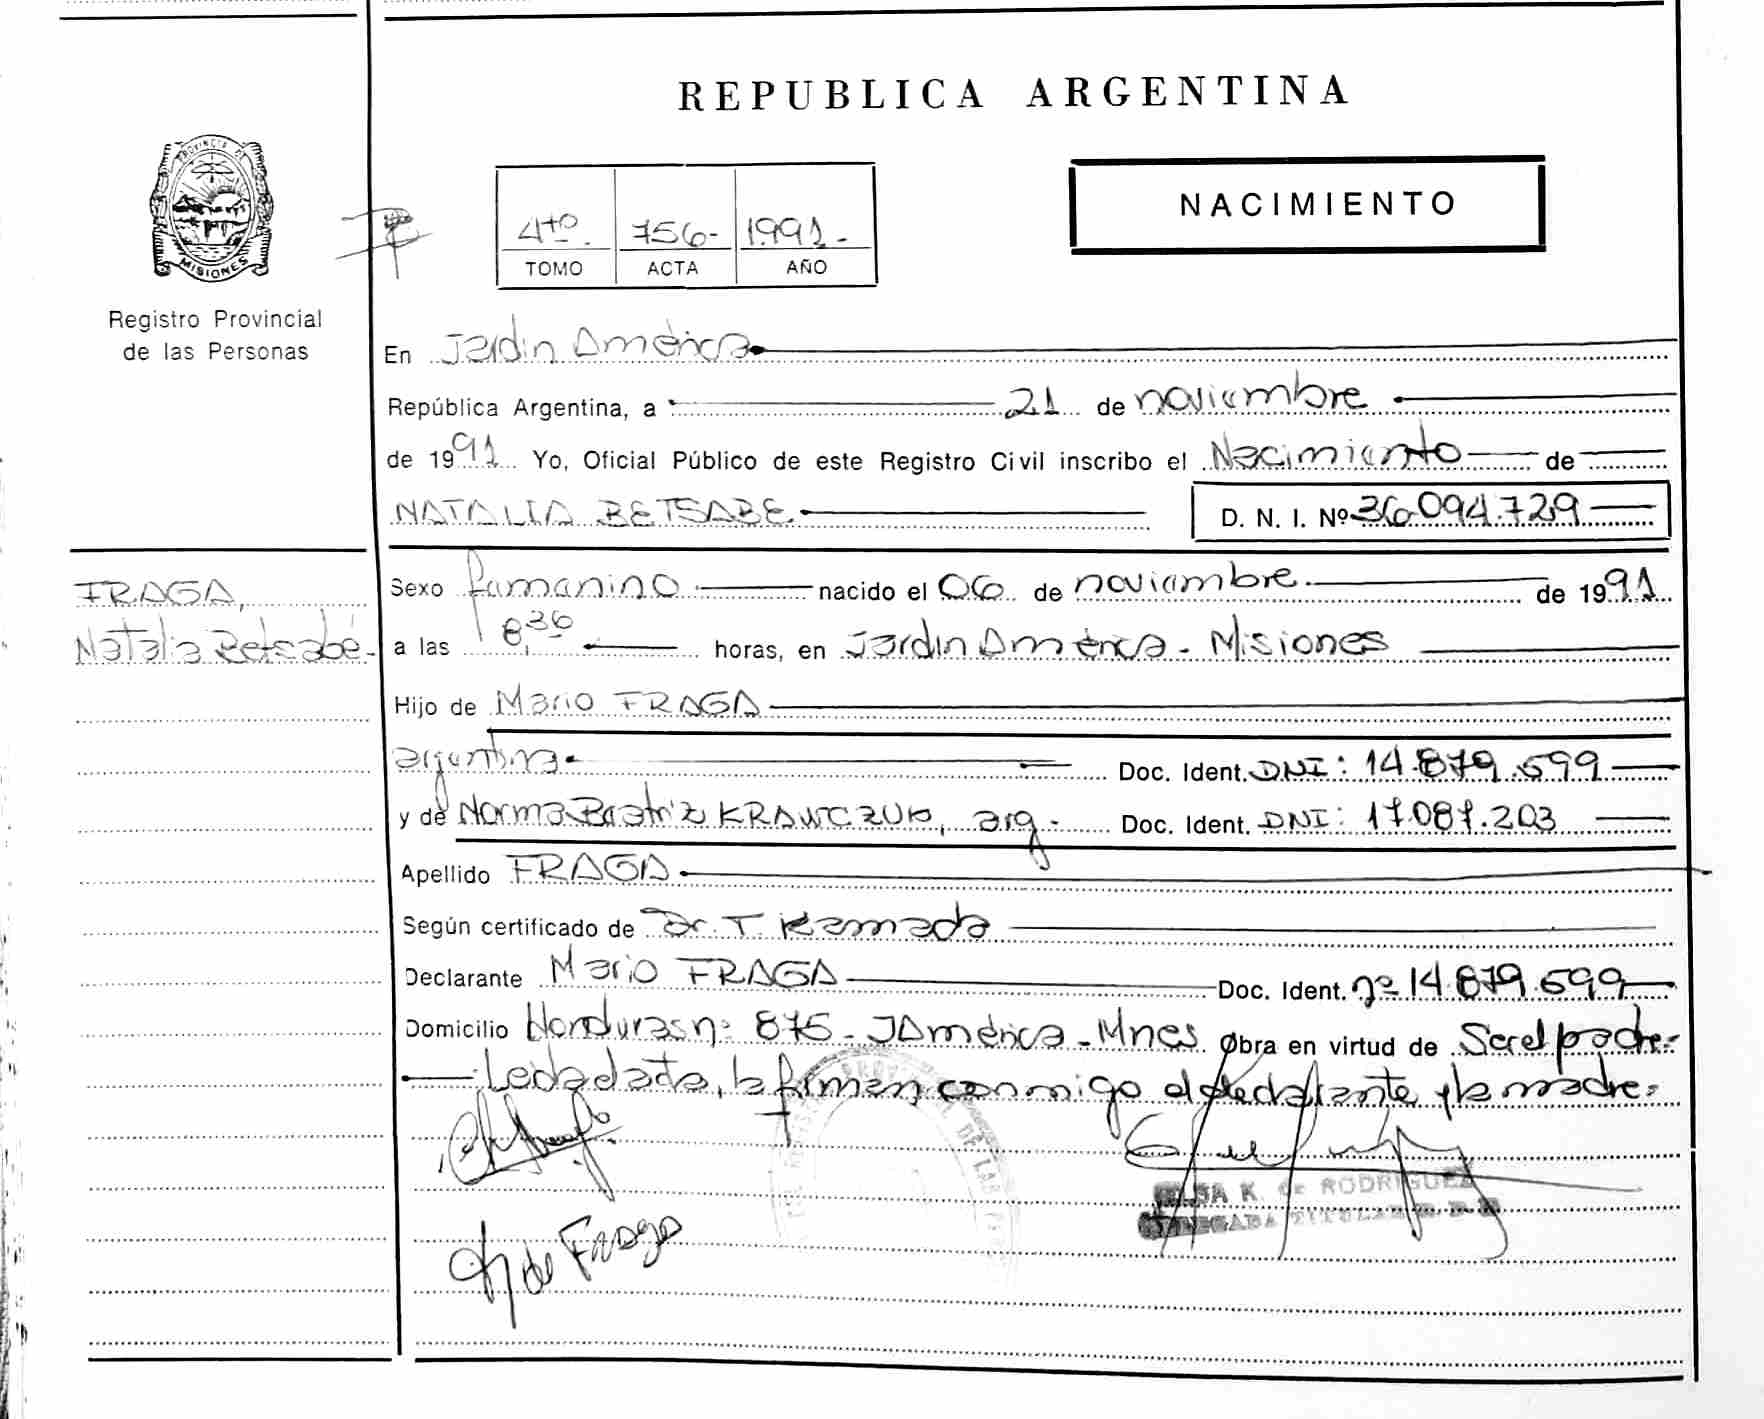 REPUBLICA ARGENTINA
PROVINCIA DE
MISIONES
Registro Provincial
de las Personas
4to. 756- 1991.-
TOMO ACTA AÑO
NACIMIENTO
En Jardin América
República Argentina, a 21 de noviembre
de 1991 Yo, Oficial Público de este Registro Civil inscribo el Nacimiento de
NATALIA BETSABE. D. N. I. Nº 36.094.729
FRAGA,
Natalia Betsabé-
Sexo femenino nacido el 06 de noviembre de 1991
a las 8,36 horas, en Jardin América - Misiones
Hijo de Mario FRAGA
argentina Doc. Ident. DNI: 14.879.599
y de Norma Beatriz KRAWCZUK, arg.- Doc. Ident. DNI: 17.087.203
Apellido FRAGA
Según certificado de Dr. T. Kamada
Declarante Mario FRAGA Doc. Ident. nº 14.879.599
Domicilio Honduras nº 875 - J América - Mnes Obra en virtud de Ser el padre.-
Leida el acta, la firman conmigo el declarante y la madre.
K. de RODRIGUEZ
TITULAR
de Fraga